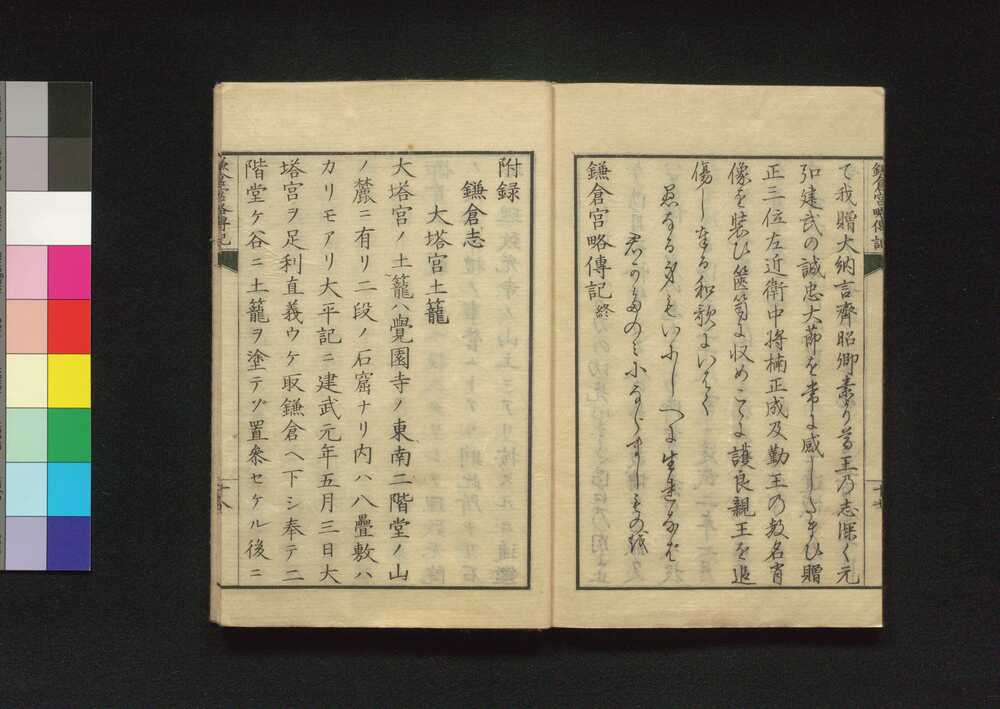 鎌倉宮略傳記
て我贈大納言齊昭卿素より尊王乃志深く元
弘建武の誠忠大節を常に感したまひ贈
正三位左近衛中将楠正成及勤王の数名肖
像を装ひ篋笥に収めことに護良親王を追
傷し奉る和歌にいはく
愚なる身もいにしへに生れなは
君かための
鎌倉宮略傳記終
十七
附録
鎌倉志
大塔宮土籠
大塔宮ノ土籠ハ覺園寺ノ東南二階堂ノ山
ノ麓ニ有リ二段ノ石窟ナリ内ハ八疊敷ハ
カリモアリ大平記ニ建武元年五月三日大
塔宮ヲ足利直義ウケ取鎌倉ヘ下シ奉テ二
階堂ケ谷ニ土籠ヲ塗テゾ置参セケル後ニ
鎌倉宮略傳記
十八